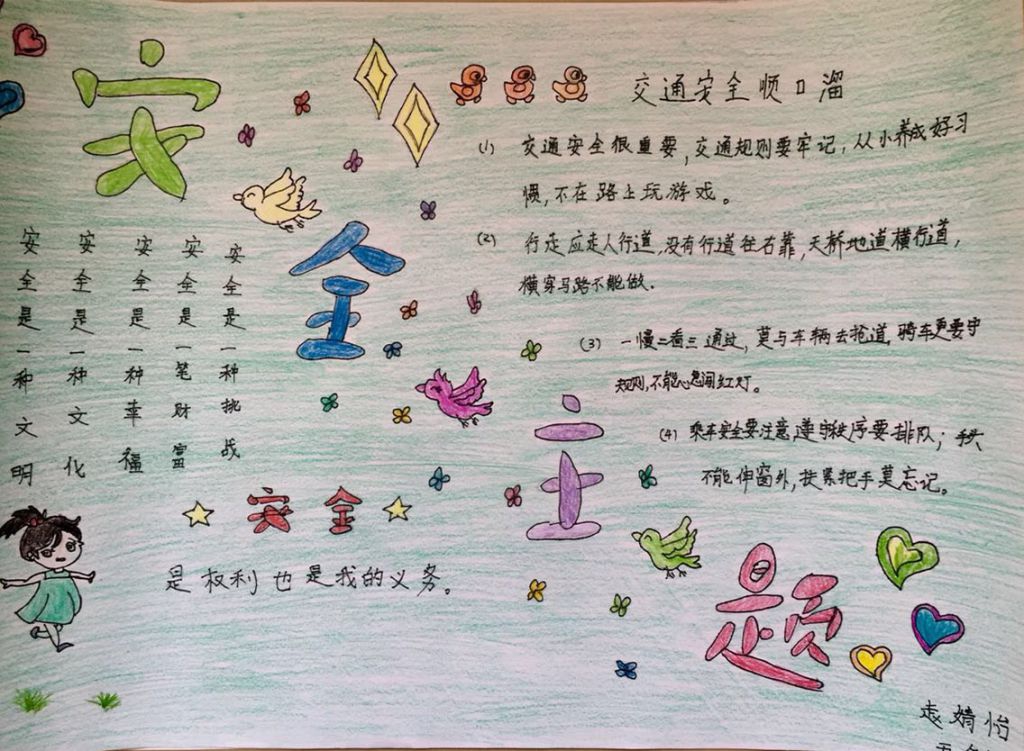 安全主题
交通安全顺口溜
(1) 交通安全很重要,交通规则要牢记,从小养成好习
惯,不在路上玩游戏。
(2) 行走应走人行道,没有行道往右靠,天桥地道横行道,
横穿马路不能做.
(3) 一慢二看三通过,莫与车辆去抢道,骑车更要守
规则,不能心急闯红灯。
(4) 乘车安全要注意遵守秩序要排队;头
不能伸窗外,扶紧把手莫忘记。
安全是一种文明
安全是一种文化
安全是一种幸福
安全是一笔财富
安全是一种挑战
安全
是权利也是我的义务。
婧怡